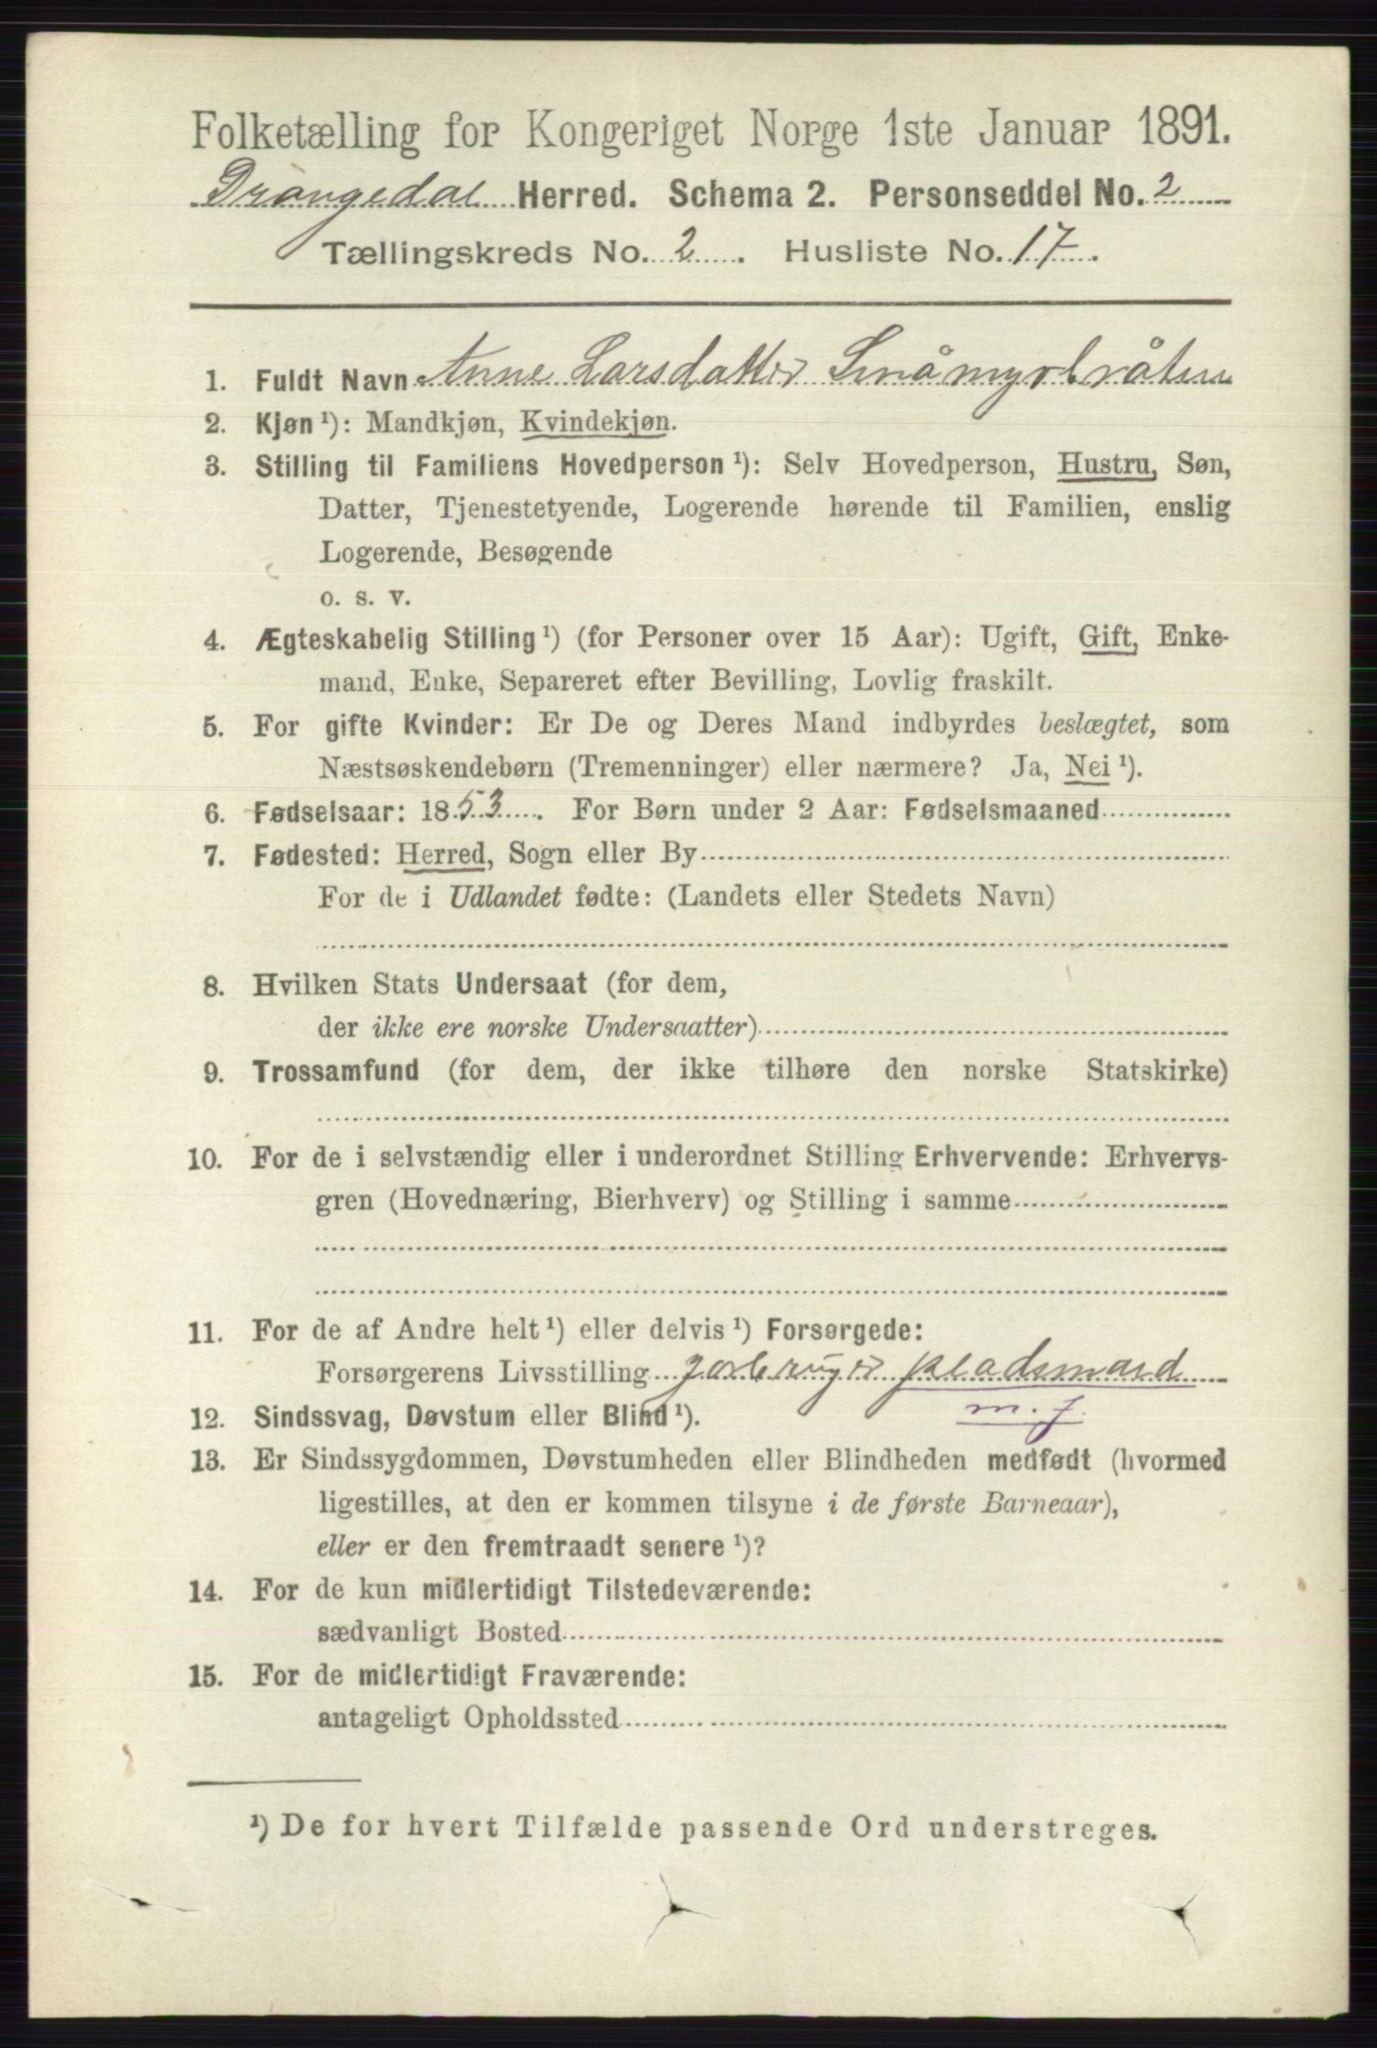 Folketælling for Kongeriget Norge 1ste Januar 1891.
Drangedal Herred. Schema 2. Personseddel No. 2
Tællingskreds No. 2. Husliste No. 17.
1. Fuldt Navn Anne Larsdatter Småmyrbråten
2. Kjøn¹): Mandkjøn, Kvindekjøn.
3. Stilling til Familiens Hovedperson¹): Selv Hovedperson, Hustru, Søn,
Datter, Tjenestetyende, Logerende hørende til Familien, enslig
Logerende, Besøgende
o. s. v.
4. Ægteskabelig Stilling¹) (for Personer over 15 Aar): Ugift, Gift, Enke-
mand, Enke, Separeret efter Bevilling, Lovlig fraskilt.
5. For gifte Kvinder: Er De og Deres Mand indbyrdes beslægtet, som
Næstsøskendebørn (Tremenninger) eller nærmere? Ja, Nei¹).
6. Fødselsaar: 1853. For Børn under 2 Aar: Fødselsmaaned
7. Fødested: Herred, Sogn eller By
For de i Udlandet fødte: (Landets eller Stedets Navn)
8. Hvilken Stats Undersaat (for dem,
der ikke ere norske Undersaatter)
9. Trossamfund (for dem, der ikke tilhøre den norske Statskirke)
10. For de i selvstændig eller i underordnet Stilling Erhvervende: Erhvervs-
gren (Hovednæring, Bierhverv) og Stilling i samme
11. For de af Andre helt¹) eller delvis¹) Forsørgede:
Forsørgerens Livsstilling jorbruger pladsmand
m. j.
12. Sindssvag, Døvstum eller Blind¹).
13. Er Sindssygdommen, Døvstumheden eller Blindheden medfødt (hvormed
ligestilles, at den er kommen tilsyne i de første Barneaar),
eller er den fremtraadt senere¹)?
14. For de kun midlertidigt Tilstedeværende:
sædvanligt Bosted
15. For de midlertidigt Fraværende:
antageligt Opholdssted
¹) De for hvert Tilfælde passende Ord understreges.